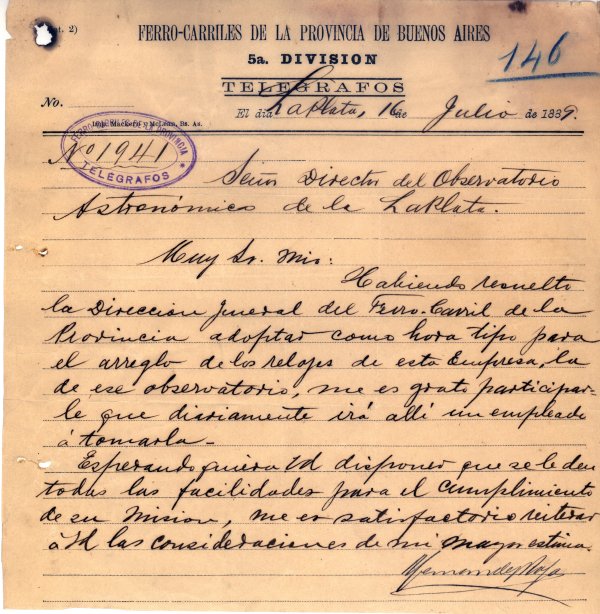 t. 2)
FERRO-CARRILES DE LA PROVINCIA DE BUENOS AIRES
146
5a. DIVISION
TELEGRAFOS
No.
El dia LaPlata, 16 de Julio de 1889.
Imp. Mackern y McLean, Bs. As.
FERRO-CARRILES DE LA PROVINCIA
TELEGRAFOS
No 1941
Señor Director del Observatorio
Astronómico de la LaPlata.
Muy Sr. Mio:
Habiendo resuelto
la Direccion Jeneral del Ferro-Carril de la
Provincia adoptar como hora tipo para
el arreglo de los relojes de esta Empresa, la
de ese observatorio, me es grato participar-
le que diariamente irá allí un empleado
á tomarla-
Esperando quiera Vd disponer que se le den
todas las facilidades para el cumplimiento
de su mision, me es satisfactorio reiterar
á Vd las consideraciones de mi mayor estima.